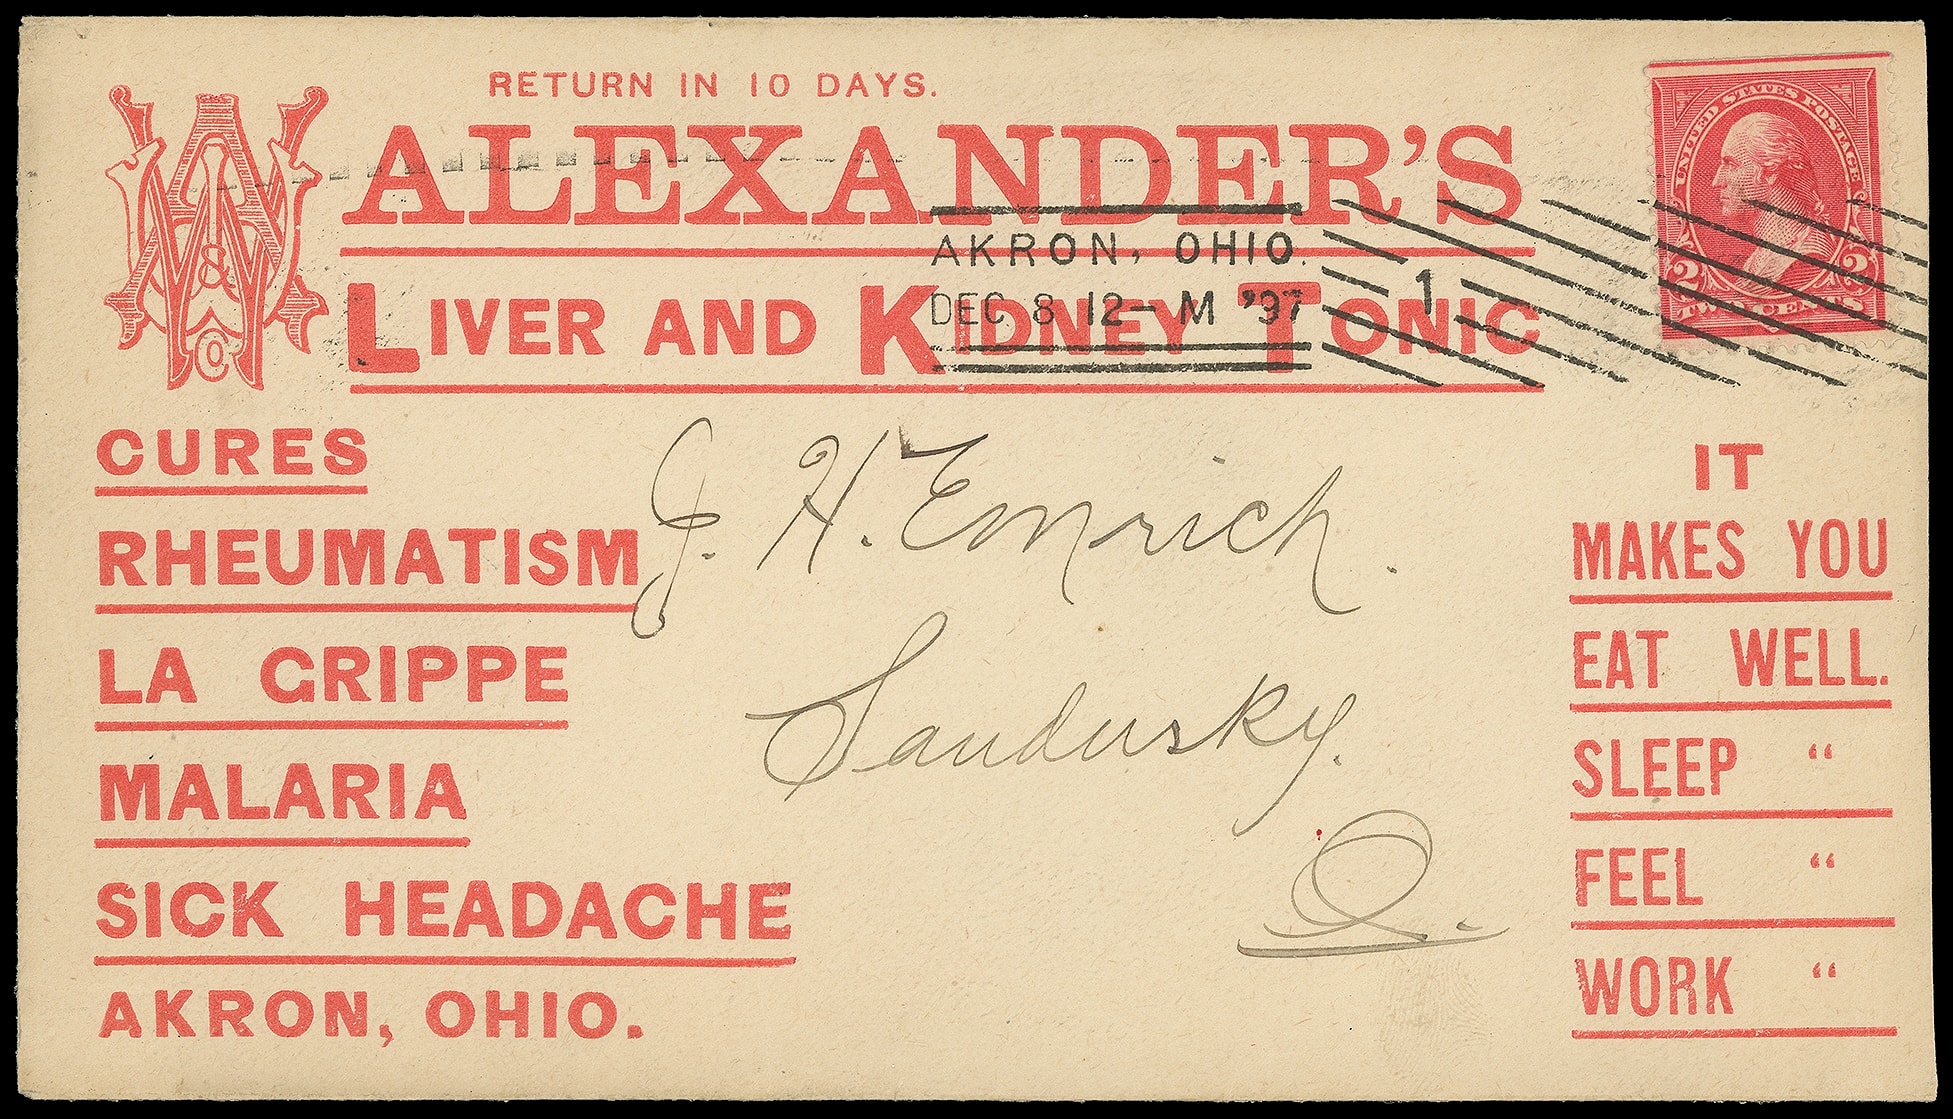 RETURN IN 10 DAYS.
WA & CO
ALEXANDER'S
LIVER AND KIDNEY TONIC
UNITED STATES POSTAGE
2 2
TWO CENTS
AKRON, OHIO.
DEC 8 12-M '97
1
CURES
RHEUMATISM
LA GRIPPE
MALARIA
SICK HEADACHE
AKRON, OHIO.
J. H. Emrich.
Sandusky.
O.
IT
MAKES YOU
EAT WELL.
SLEEP “
FEEL “
WORK “